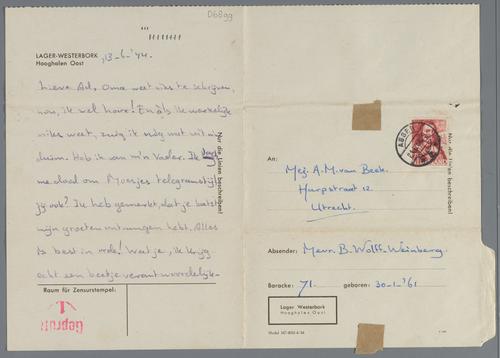 D6899
LAGER-WESTERBORK
Hooghalen Oost
, 13-6-'44.
Lieve Ad, Oma weet niks te schrijven,
nou, ik wel hoire! En als ik werkelijk
niks weet, zuig ik nog wat uit m'n
duim. Heb ik van m'n Vader. Ik
me dood om Moesjes telegramstijl
jij ook? Ik heb gemerkt, dat je laatst
mijn groeten ontvangen hebt. Alles
is best in orde! Weet je, ik krijg
echt een beetje verantwoordelijk-
Nur die Linien beschreiben!
Raum für Zensurstempel:
Geprüft
ASSEN
Nur die Linien beschreiben!
An:
Mej. A.M. van Beek.
Harpstraat 12.
Utrecht.
Absender: Mevr. B. Wolff-Weinberg.
Baracke: 71. geboren: 30-1-'61
Lager Westerbork
Hooghalen Oost